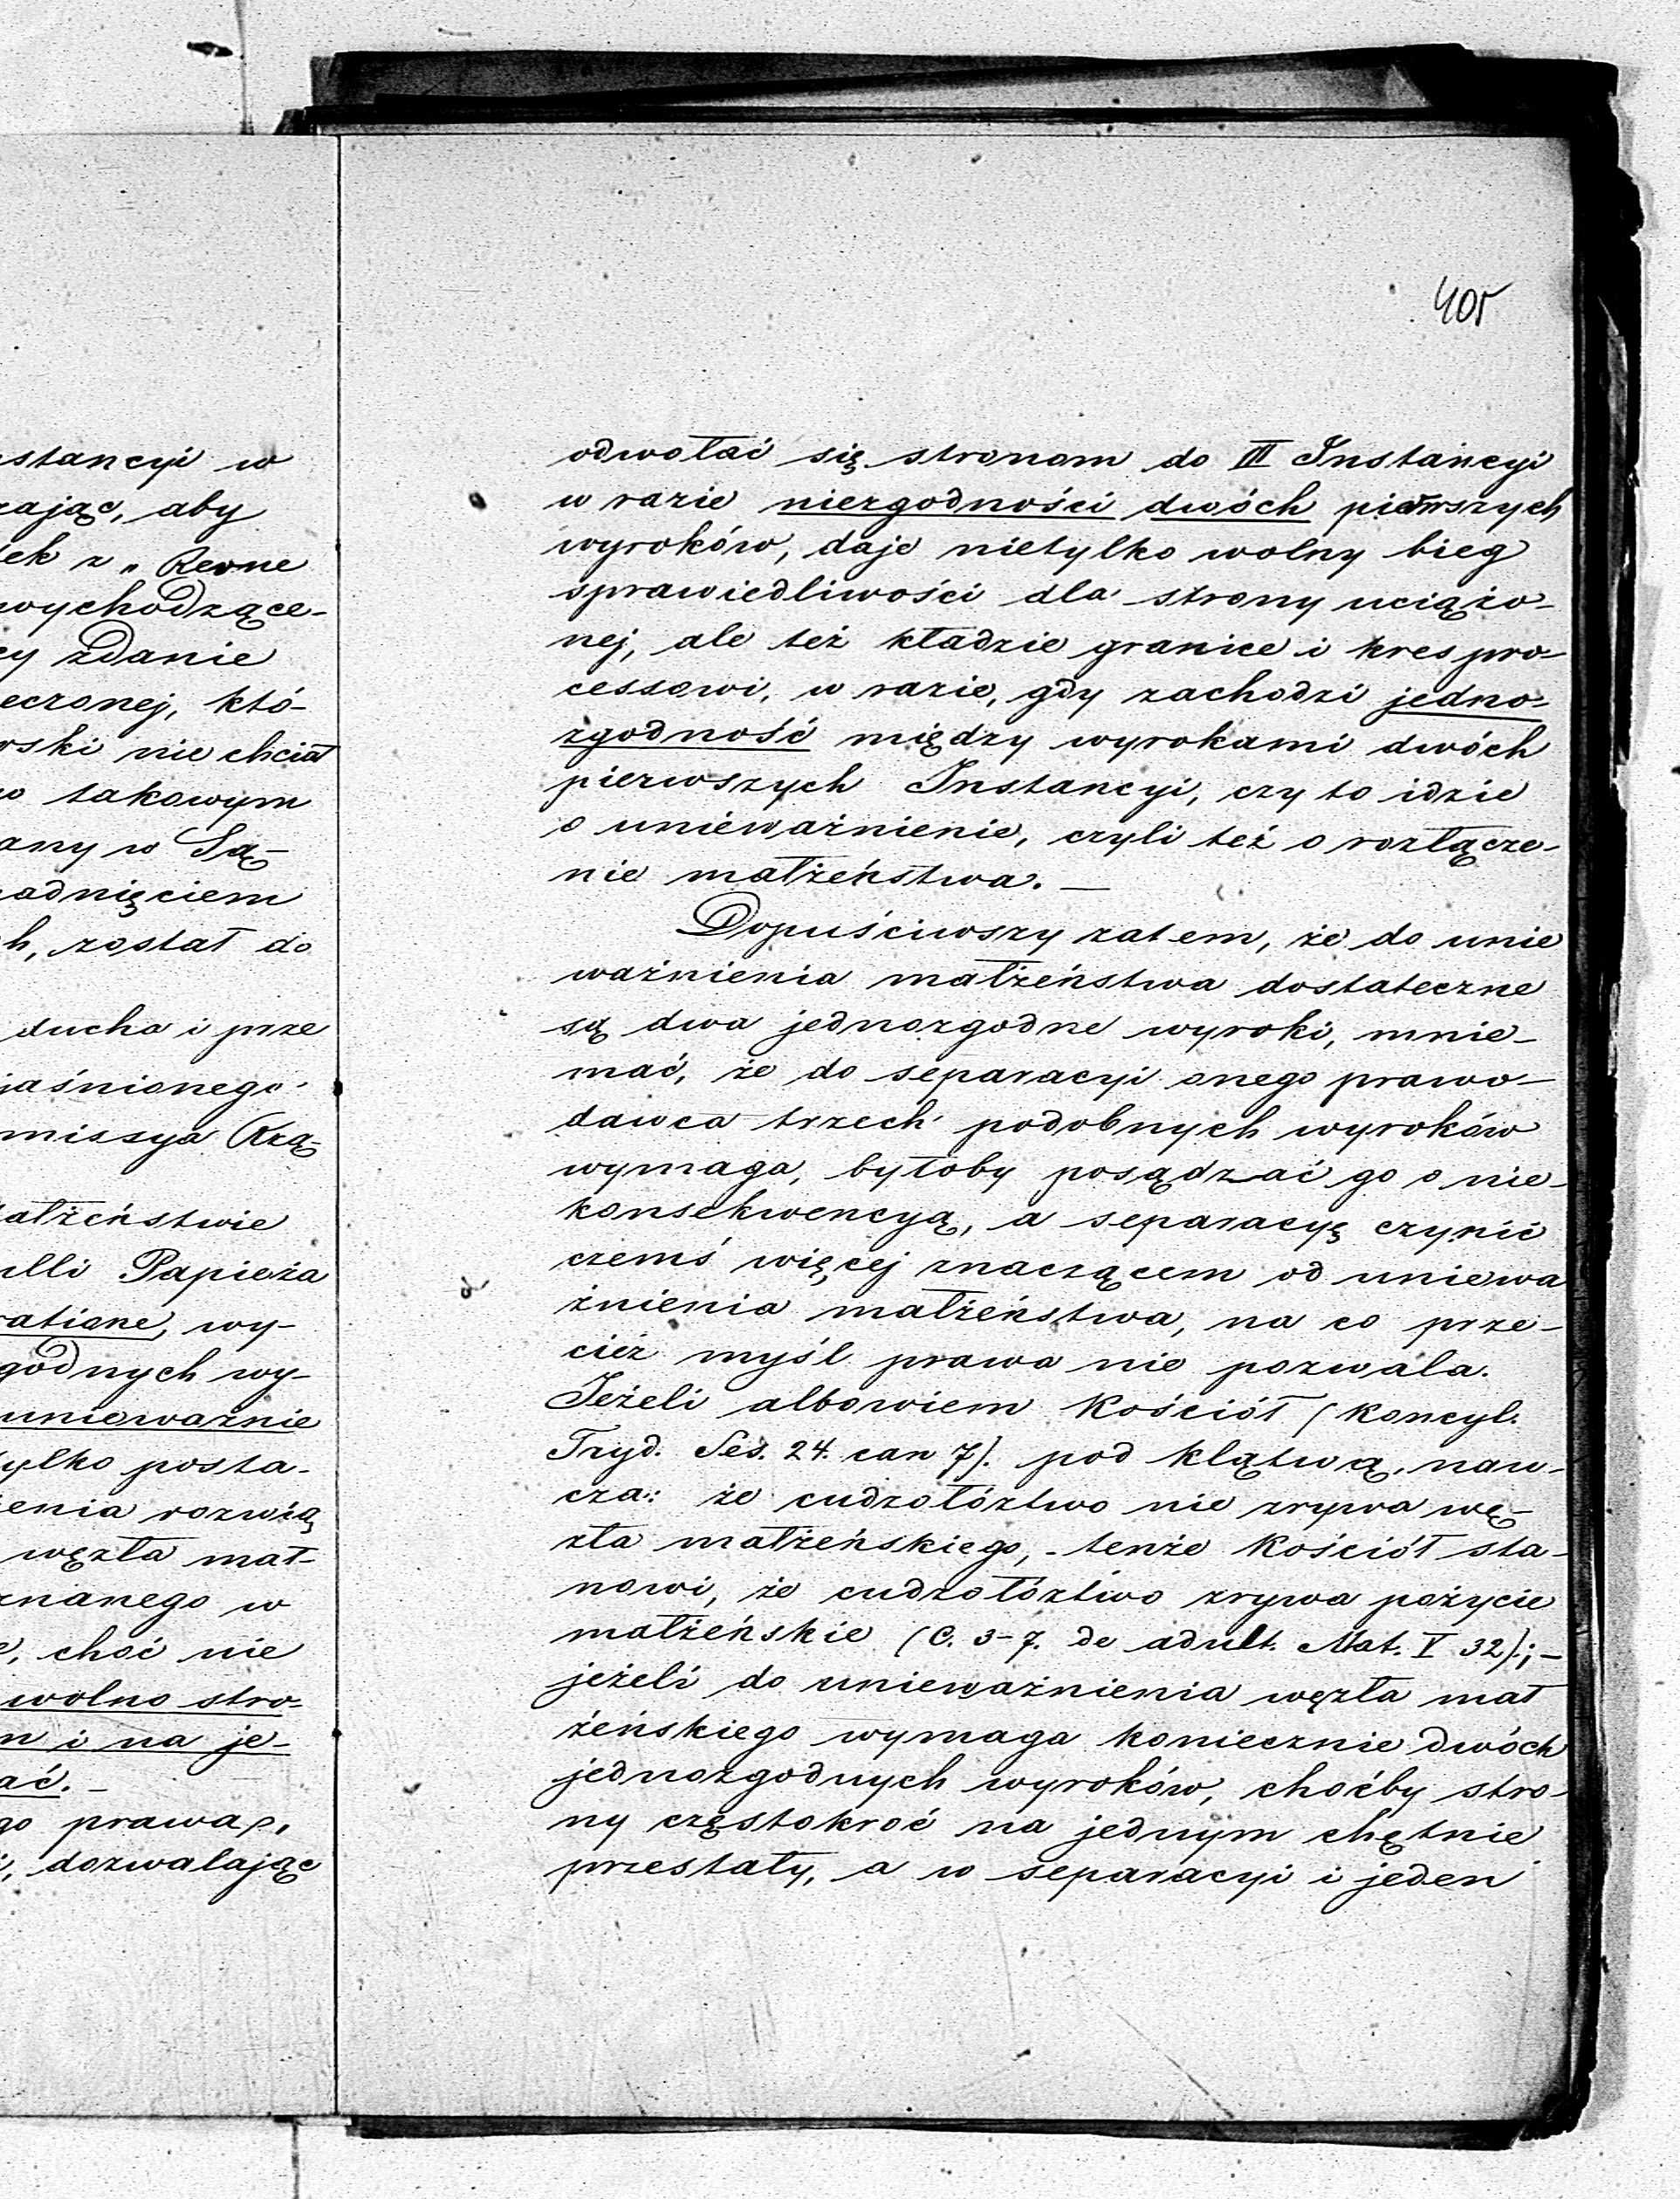 stancyi w
rając, aby
tek z „Revue
wychodzące-
cy zdanie
eczonej, któ-
rski nie chciał
o takowym
any w Są-
adnięciem
h, został do
ducha i prze
jaśnionego
missya Rzą-
ałżeństwie
ulli Papieża
ratione, wy-
godnych wy-
unieważnie
tylko posta-
enia rozwią
węzła mał-
znanego w
e, choć nie
wolno stro-
m i na je-
ać. -
go prawa,
i, dozwalając
405
odwołać się stronom do III Instancyi
w razie niezgodności dwóch pierwszych
wyroków, daje nietylko wolny bieg
sprawiedliwości dla strony uciążo-
nej, ale też kładzie granice i kres pro-
cessowi, w razie, gdy zachodzi jedno-
zgodność między wyrokami dwóch
pierwszych Instancyi, czy to idzie
o unieważnienie, czyli też o rozłącze-
nie małżeństwa. —
Dopuściwszy zatem, że do unie
ważnienia małżeństwa dostateczne
są dwa jednozgodne wyroki, mnie-
mać, że do separacyi onego prawo-
dawca trzech podobnych wyroków
wymaga, byłoby posądzać go o nie-
konsekwencyą, a separacyę czynić
czemś więcej znaczącem od uniewa
żnienia małżeństwa, na co prze-
cież myśl prawa nie pozwala.
Jeżeli albowiem Kościół (Koncyl.
Tryd. Ses. 24. can 7). pod klątwą, nau-
cza: że cudzołóztwo nie zrywa wę-
zła małżeńskiego, - tenże Kościół sta-
nowi, że cudzołóztwo zrywa pożycie
małżeńskie (C. 3-7. de adult. Mat. V 32).; —
jeżeli do unieważnienia węzła mał
żeńskiego wymaga koniecznie dwóch
jednozgodnych wyroków, choćby stro-
ny częstokroć na jednym chętnie
przestały, a w separacyi i jeden